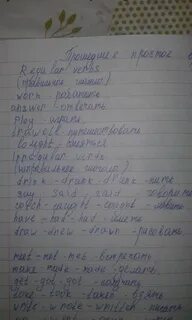 Прошедшее простое
Regular verbs
(правильные глаголы)
work - работать
answer - отвечать
play - играть
travell - путешествовать
to light, смеяться
Irregular verbs
(неправильные глаголы)
drink - drank - drunk - пить
say - said - said - говорить
catch - caught - caught - ловить
have - had - had - иметь
draw - drew - drawn - рисовать
meet - met - met - встретить
make - made - made - делать
get - got - got - получить
take - took - taken - взять
write - wrote - written - писать